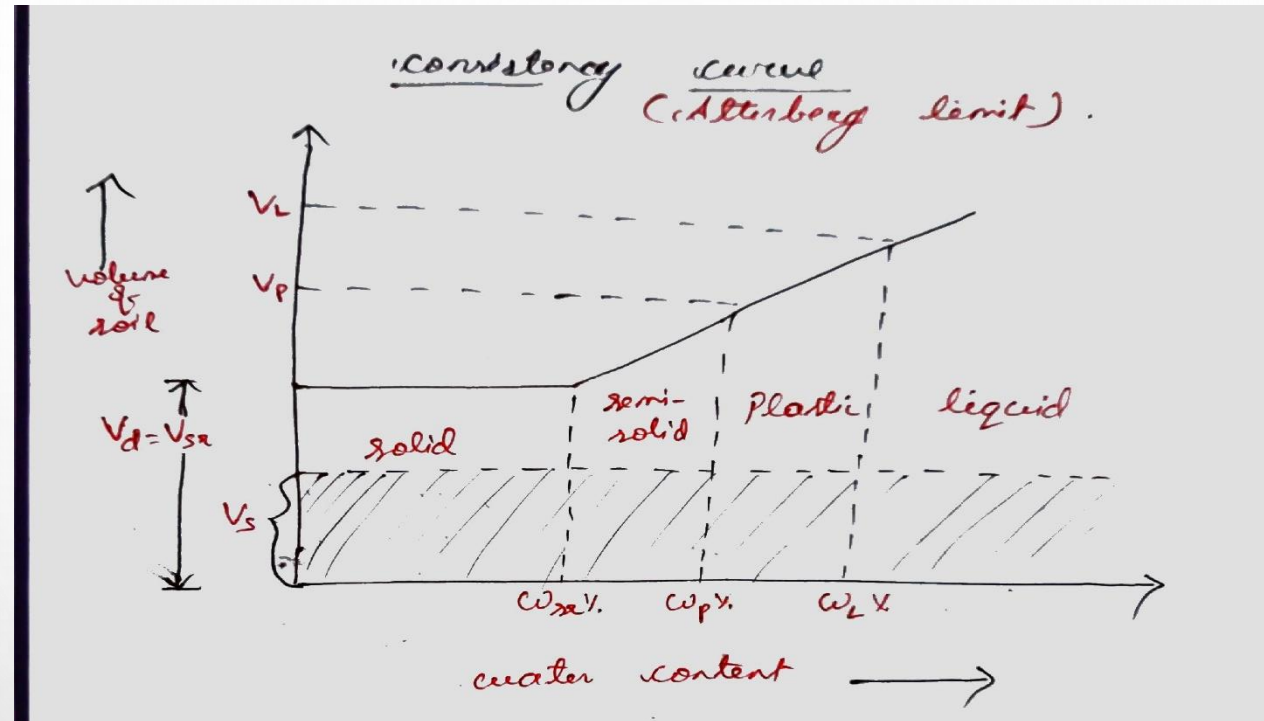 consistency curve
(Atterberg limit).
V_L
V_P
volume
of
soil
V_d = V_sr
V_s
solid
semi-
solid
Plastic
liquid
ω_sr %.
ω_p %.
ω_L %
water content